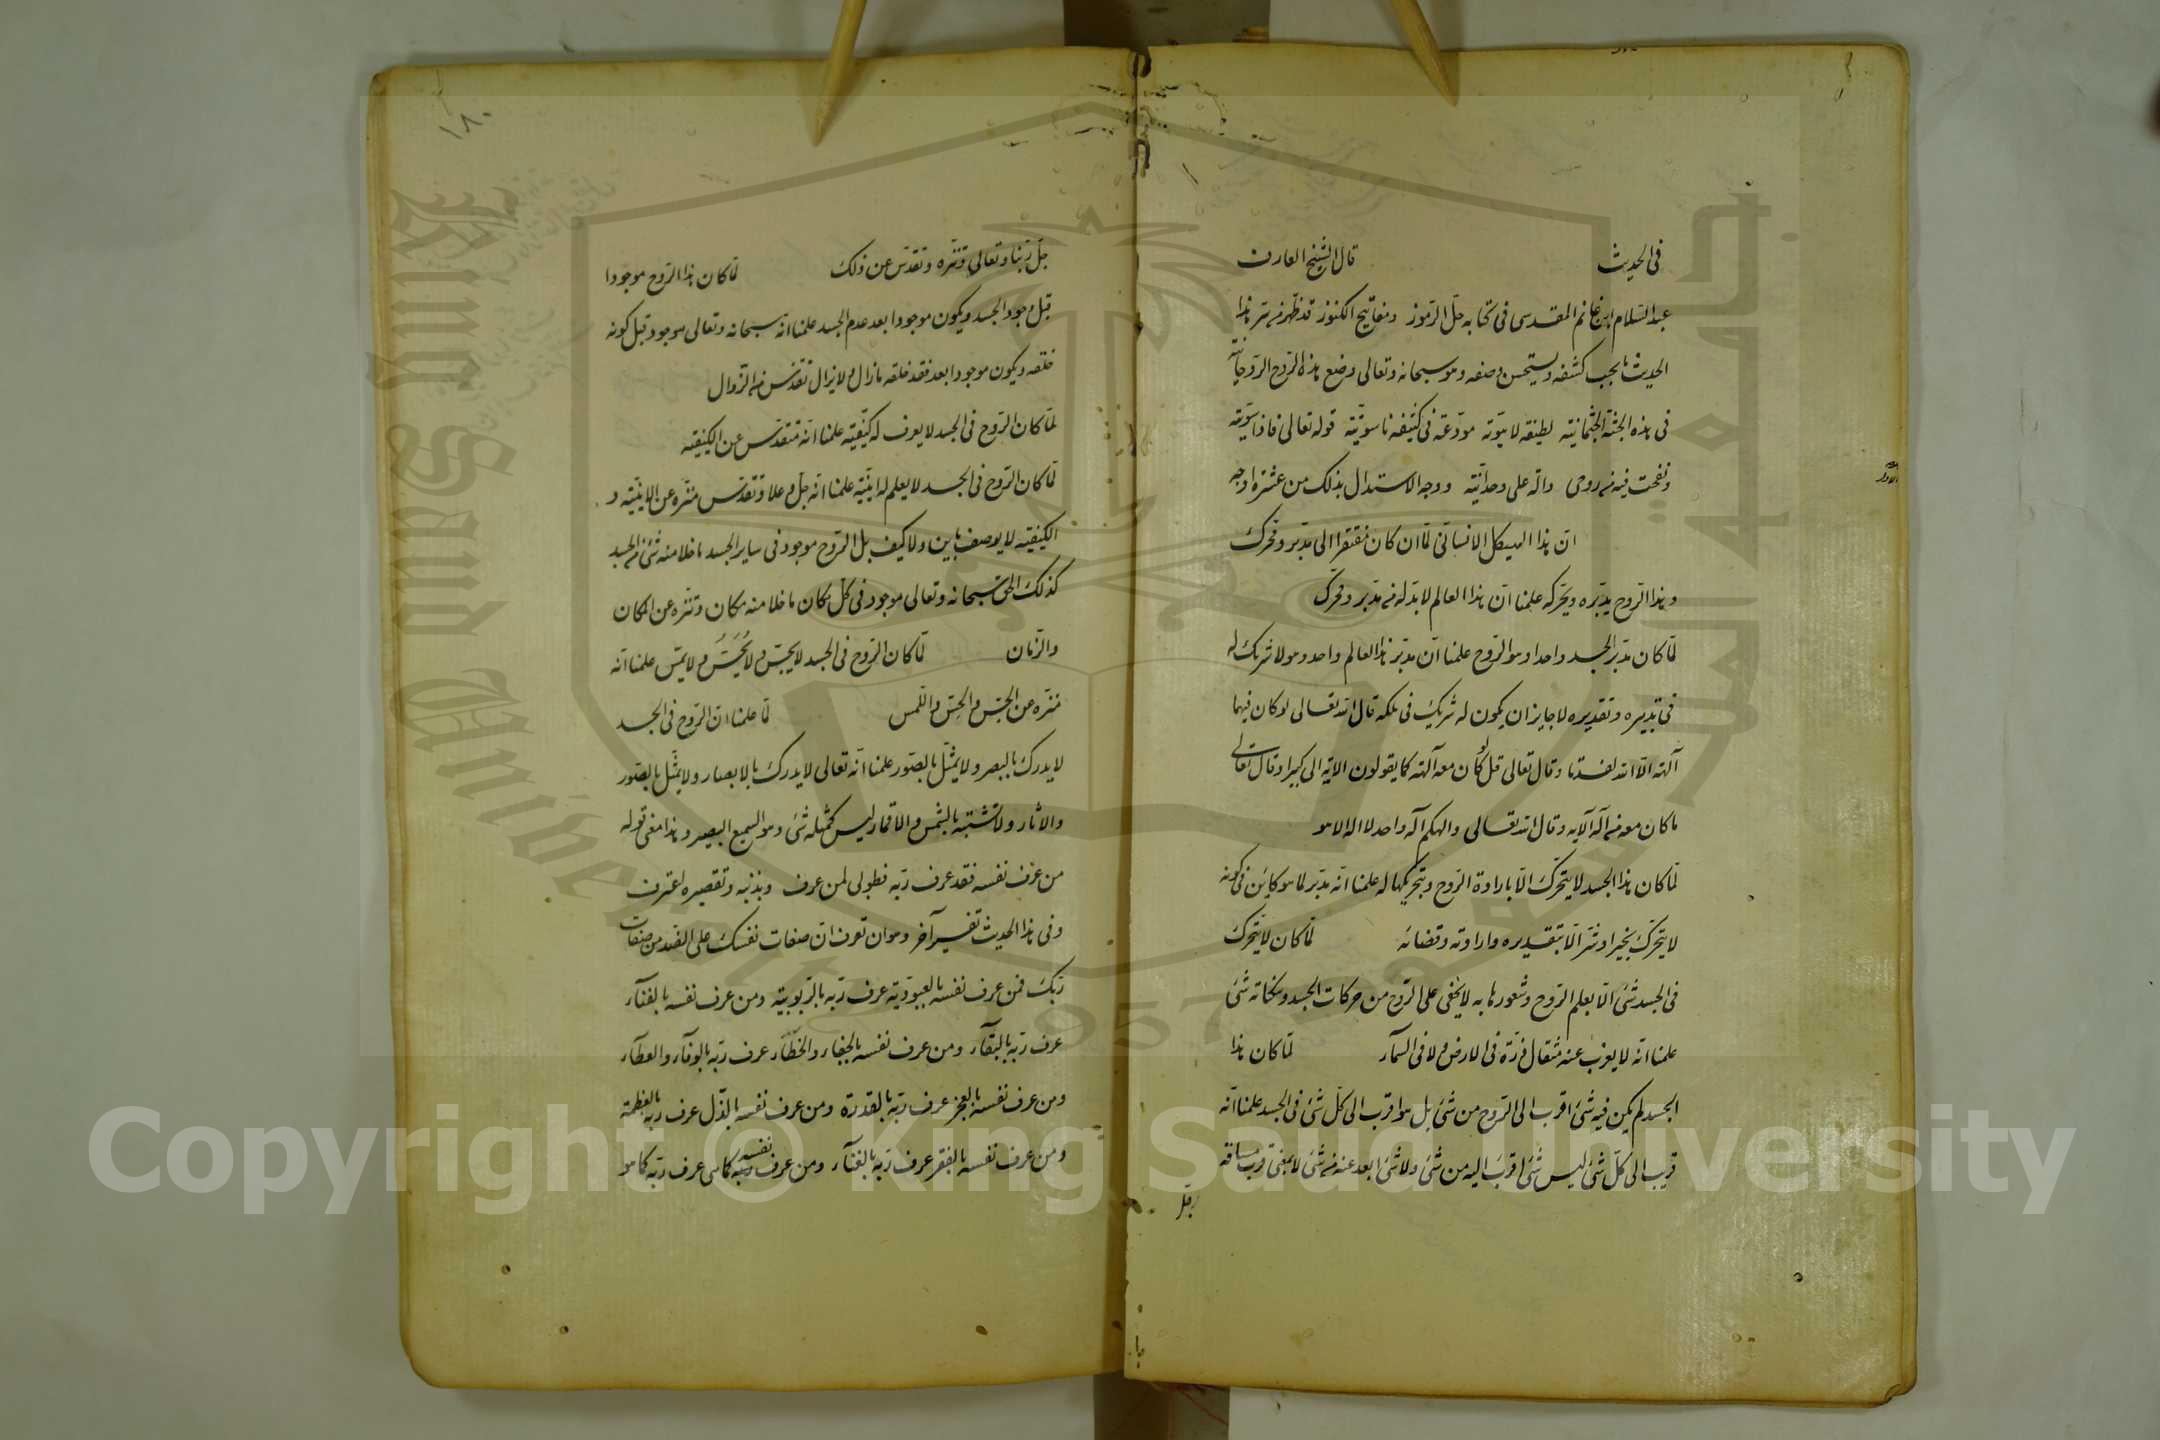 في الحديث قال الشيخ العارف
عبد السلام ابن غانم المقدسي في كتابه حل الرموز ومفاتيح الكنوز قد ظهر من سر هذا
الحديث ما يجب كشفه ويستحسن وصفه وهو سبحانه وتعالى وضع هذه الروح الروحانية
في هذه الجثة الجثمانية لطيفة لاهوتية مودعة في كثيفة ناسوتية قوله تعالى فاذا سويته
ونفخت فيه من روحي دالة على وحدانيته ووجه الاستدلال بذلك من عشرة اوجه
ان هذا الهيكل الانساني لما ان كان مفتقرا الى مدبر ومحرك
وهذا الروح يدبره ويحركه علمنا ان هذا العالم لا بد له من مدبر ومحرك
لما كان مدبر الجسد واحدا وهو الروح علمنا ان مدبر هذا العالم واحد وهو لا شريك له
في تدبيره وتقديره لا جايز ان يكون له شريك في ملكه قال الله تعالى لو كان فيهما
آلهة الا الله لفسدتا وقال تعالى قل لو كان معه آلهة كما يقولون الاية الى كبيرا وقال تعالى
ما كان معه من آله الآية وقال الله تعالى والهكم آله واحد لا اله الا هو
لما كان هذا الجسد لا يتحرك الا بارادة الروح وبتحريكها له علمنا انه مدبر لما هو كائن في كونه
لا يتحرك بخير او شر الا بتقديره وارادته وقضائه لما كان لا يتحرك
في الجسد شئ الا بعلم الروح وشعورها به لا يخفى على الروح من حركات الجسد وسكناته شئ
علمنا انه لا يعزب عنه مثقال ذرة في الارض ولا في السمآء لما كان هذا
الجسد لم يكن فيه شئ اقرب الى الروح من شئ بل هو اقرب الى كل شئ في الجسد علمنا انه
قريب الى كل شئ ليس شئ اقرب اليه من شئ ولا شئ ابعد عنه من شئ لا بمعنى قرب مسافة
١٨٠
جل ربنا وتعالى وتنزه وتقدس عن ذلك لما كان هذا الروح موجودا
قبل وجود الجسد ويكون موجودا بعد عدم الجسد علمنا انه سبحانه وتعالى موجود قبل كونه
خلقه ويكون موجودا بعد فقد خلقه ما زال ولا يزال تقدس من الزوال
لما كان الروح في الجسد لا يعرف له كيفية علمنا انه متقدس عن الكيفية
لما كان الروح في الجسد لا يعلم له اينية علمنا انه جل وعلا وتقدس منزه عن الاينية و
الكيفية لا يوصف باين ولا كيف بل الروح موجود في ساير الجسد ما خلا منه شئ من الجسد
كذلك الحق سبحانه وتعالى موجود في كل مكان ما خلا منه مكان وتنزه عن المكان
والزمان لما كان الروح في الجسد لا يحس ولا يجس ولا يمس علمنا انه
منزه عن الجس والحس واللمس لما علمنا ان الروح في الجسد
لا يدرك بالبصر ولا يمثل بالصور علمنا انه تعالى لا يدرك بالابصار ولا يمثل بالصور
والاثار ولا تشتبه بالشمس والاقمار ليس كمثله شئ وهو السميع البصير وهذا معنى قوله
من عرف نفسه فقد عرف ربه فطوبى لمن عرف وبذنبه وتقصيره اعترف
وفي هذا الحديث تفسير آخر وهو ان تعرف ان صفات نفسك على الضد من صفات
ربك فمن عرف نفسه بالعبودية عرف ربه بالربوبية ومن عرف نفسه بالفنآء
عرف ربه بالبقآء ومن عرف نفسه بالجفاء والخطآء عرف ربه بالوفآء والعطآء
ومن عرف نفسه بالعجز عرف ربه بالقدرة ومن عرف نفسه بالذل عرف ربه بالعظمة
ومن عرف نفسه بالفقر عرف ربه بالغنآء ومن عرف نفسه كما هي عرف ربه كما هو
King Saud University
1957
Copyright © King Saud University